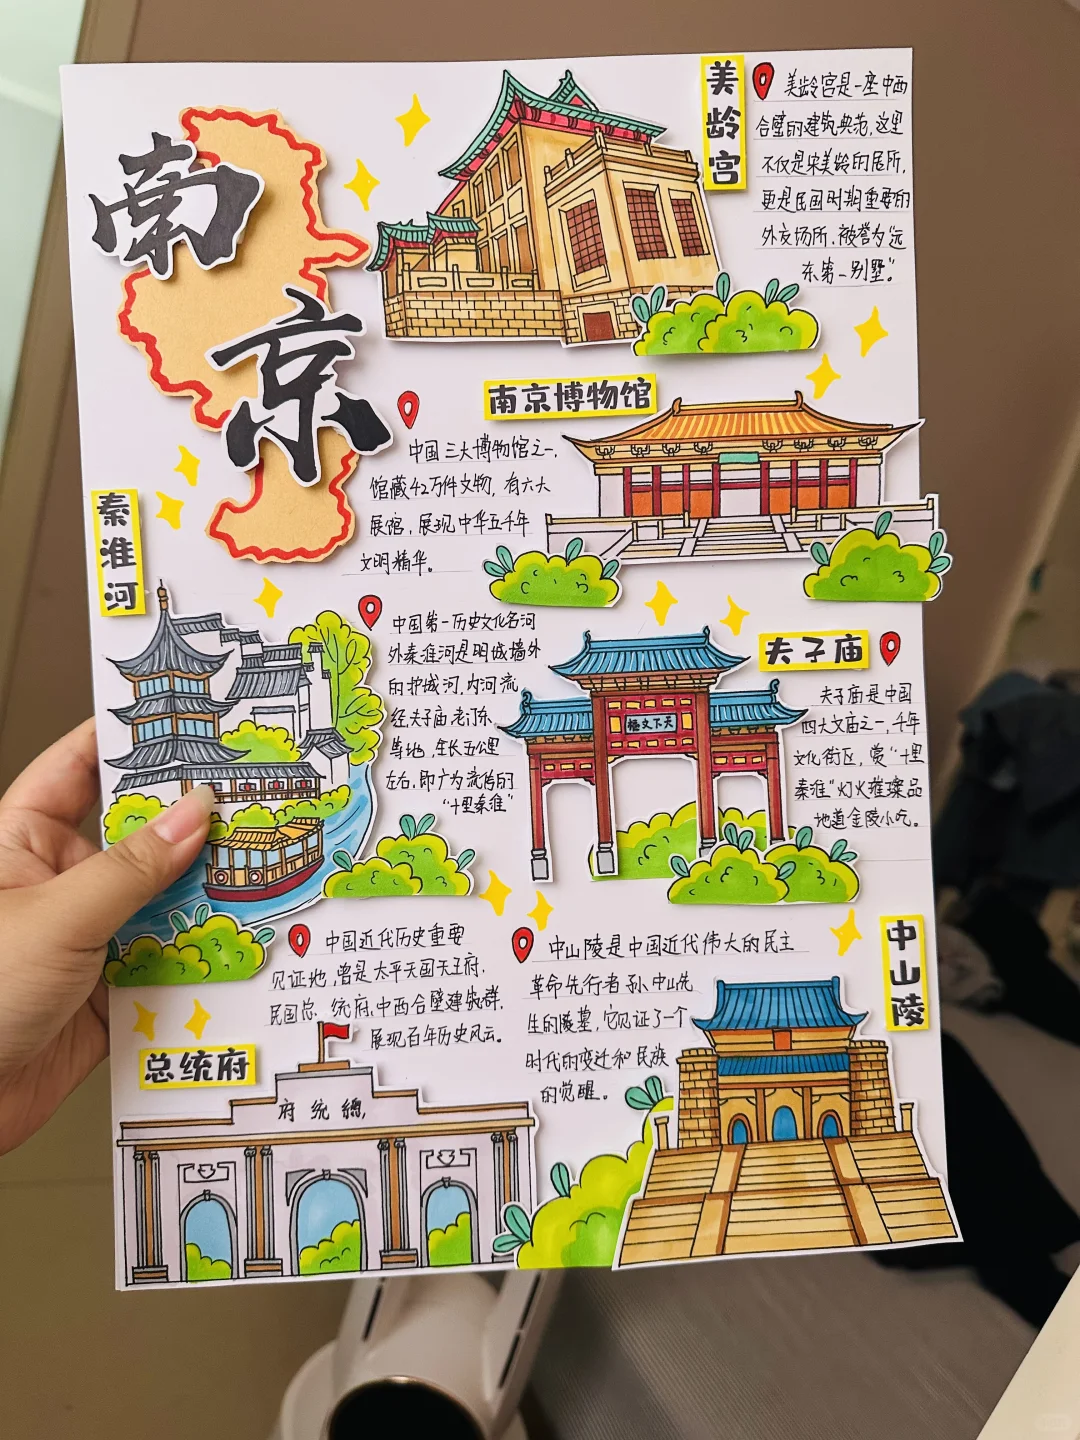 南京
美龄宫
美龄宫是一座中西
合壁的建筑典范,这里
不仅是宋美龄的居所,
更是民国时期重要的
外交场所,被誉为"远
东第一别墅"。
南京博物馆
中国三大博物馆之一,
馆藏42万件文物,有六大
展馆,展现中华五千年
文明精华。
秦淮河
中国第一历史文化名河
外秦淮河是明城墙外
的护城河,内河流
经夫子庙,老门东,
等地,全长五公里
左右,即广为流传的
"十里秦淮"
夫子庙
夫子庙是中国
四大文庙之一,千年
文化街区,赏"十里
秦淮"灯火璀璨品
地道金陵小吃。
天下文
总统府
中国近代历史重要
见证地,曾是太平天国天王府,
民国总 统府,中西合壁建筑群,
展现百年历史风云。
府统總
中山陵
中山陵是中国近代伟大的民主
革命先行者孙中山先
生的陵墓,它见证了一个
时代的变迁和民族
的觉醒。